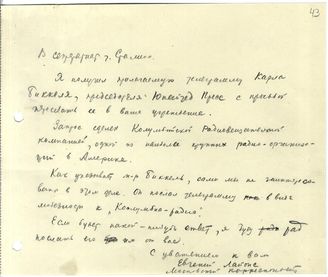 43
В секретариат т. Сталина.
Я получил прилагаемую телеграмму Карла
Биккеля, председателя Юнайтед Пресс с просьбой
передать ее в ваше учреждение.
Запрос сделан Колумбийской Радиовещательной
компанией, одной из наиболее крупных радио-организа-
ций в Америке.
Как указывает м-р Биккель, сами мы не заинтересо-
ваны в этом деле. Он послал телеграмму в виде
любезности к „Колумбиа-радио".
Если будет какой-нибудь ответ, я буду рад
послать его от вас.
С уважением к вам
Евгений Лайонс
Московский корреспондент